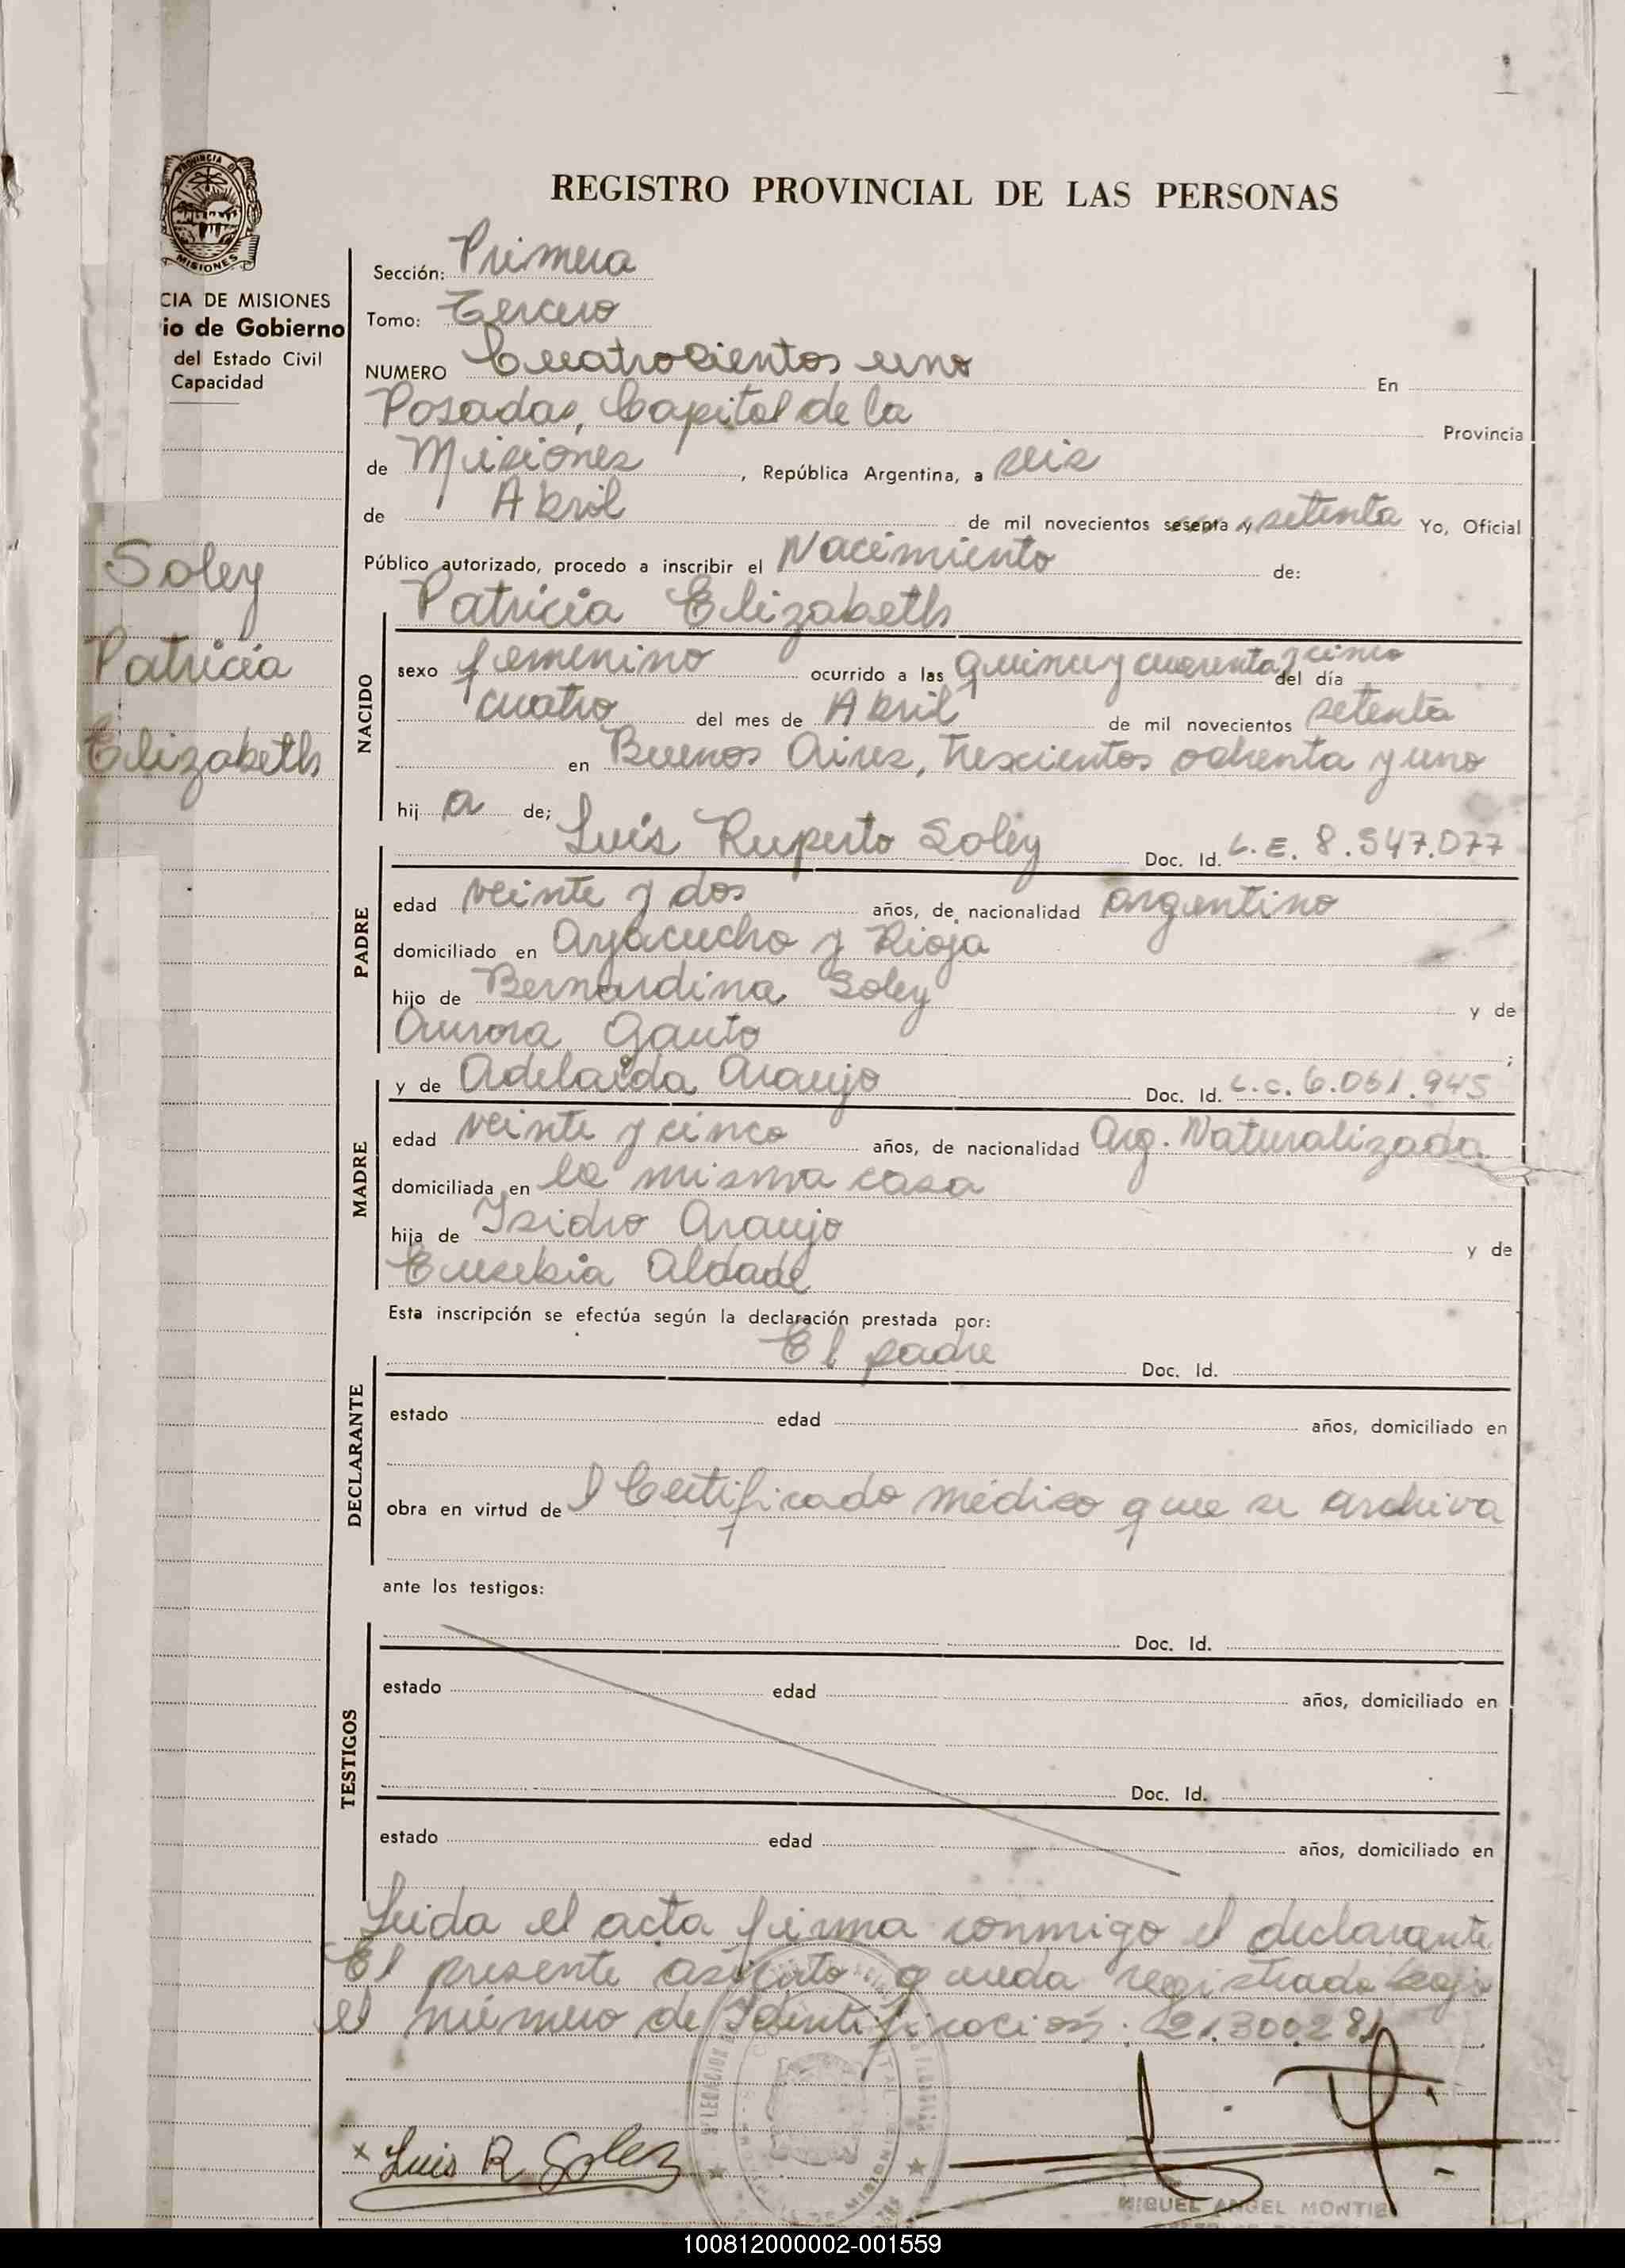 REGISTRO PROVINCIAL DE LAS PERSONAS
PROVINCIA D
MISIONES
CIA DE MISIONES
io de Gobierno
del Estado Civil
Capacidad
Soley
Patricia
Elizabeth
Sección: Primera
Tomo: Tercero
NUMERO Cuatrocientos uno En
Posadas, Capital de la Provincia
de Misiones, República Argentina, a seis
de Abril de mil novecientos sesenta y setenta Yo, Oficial
Público autorizado, procedo a inscribir el Nacimiento de:
Patricia Elizabeth
NACIDO
sexo femenino ocurrido a las quince y cuarenta y cinco del día
cuatro del mes de Abril de mil novecientos setenta
en Buenos Aires, trescientos ochenta y uno
hij a de; Luis Ruperto Soley Doc. Id. L.E. 8.547.077
PADRE
edad veinte y dos años, de nacionalidad argentino
domiciliado en Ayacucho y Rioja
hijo de Bernardina Soley y de
Aurora Gauto ;
y de Adelaida Araujo Doc. Id. L.C. 6.051.945
MADRE
edad veinte y cinco años, de nacionalidad Arg. Naturalizada
domiciliada en la misma casa
hija de Isidro Araujo y de
Eusebia Aldade
Esta inscripción se efectúa según la declaración prestada por:
El padre Doc. Id.
DECLARANTE
estado edad años, domiciliado en
obra en virtud de l Certificado médico que se archiva
ante los testigos:
TESTIGOS
Doc. Id.
estado edad años, domiciliado en
Doc. Id.
estado edad años, domiciliado en
Leida el acta firma conmigo el declarante
El presente asiento queda registrado bajo
el número de Identificación: 21.300.281
x Luis R Soley
MIGUEL ANGEL MONTIE
100812000002-001559